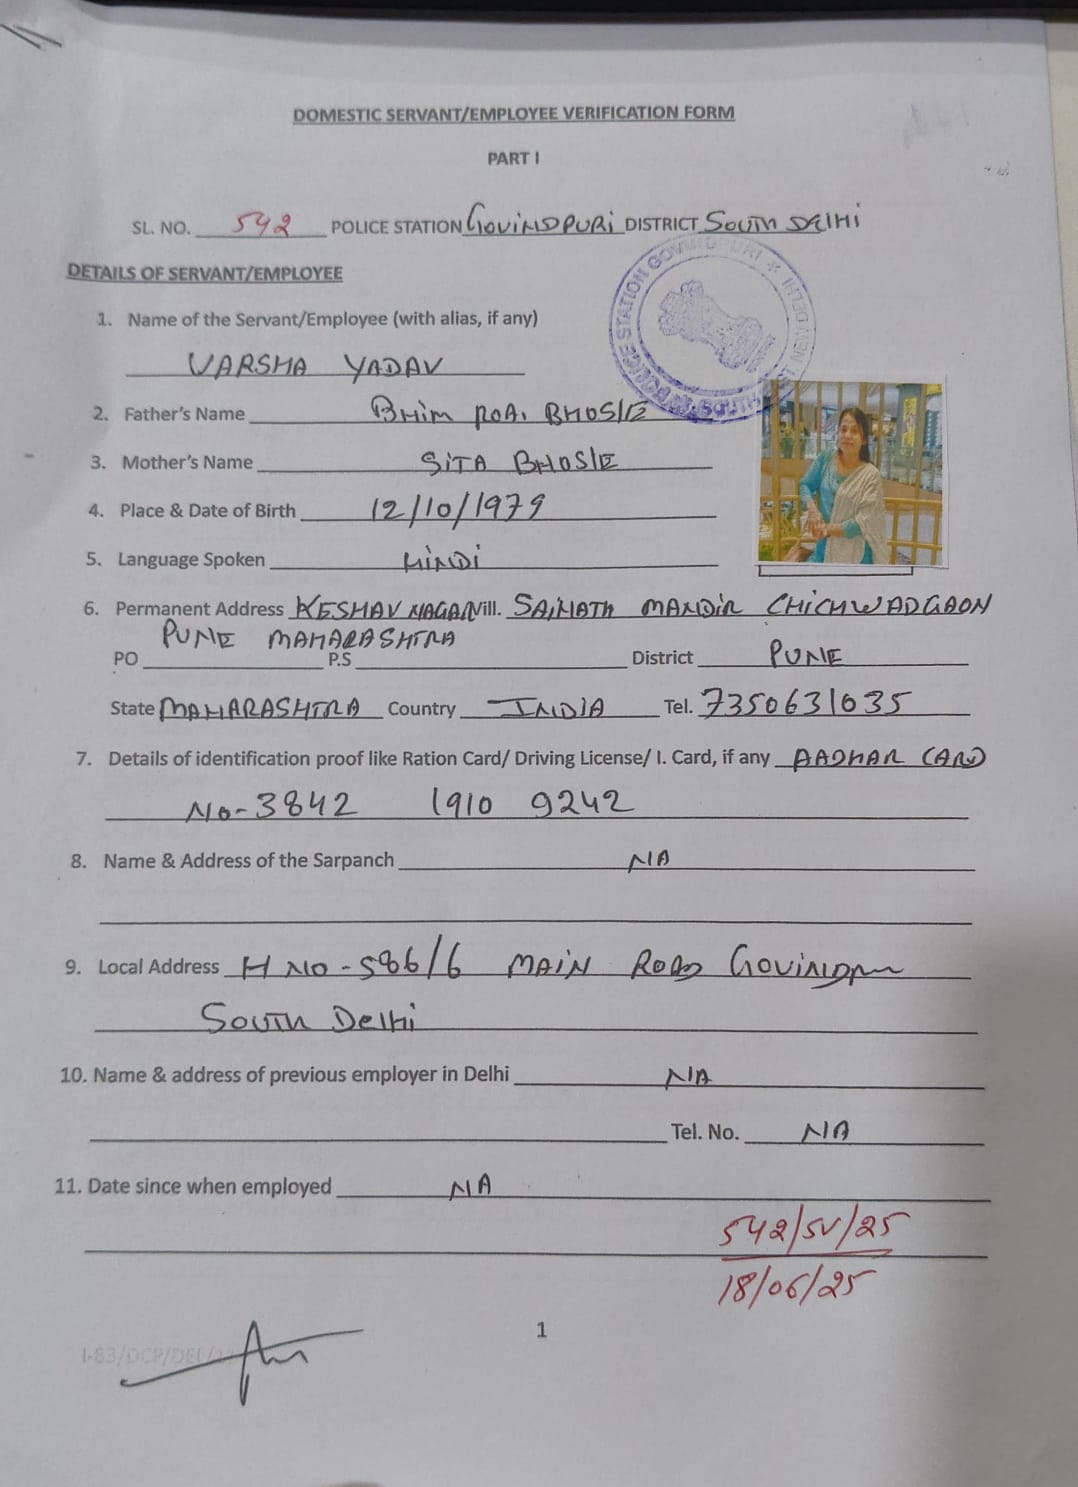 DOMESTIC SERVANT/EMPLOYEE VERIFICATION FORM
PART I
SL. NO. 542 POLICE STATION GOVINDPURI DISTRICT SOUTH DELHI
DETAILS OF SERVANT/EMPLOYEE
POLICE STATION GOVINDPURI
1. Name of the Servant/Employee (with alias, if any)
VARSHA YADAV
2. Father's Name BHIM ROA. BHOSLE
3. Mother's Name SITA BHOSLE
4. Place & Date of Birth 12/10/1979
5. Language Spoken HINDI
6. Permanent Address KESHAV NAGAR Vill. SAINATH MANDIR CHICHWADGAON
PUNE MAHARASHTRA
PO P.S District PUNE
State MAHARASHTRA Country INDIA Tel. 7350631035
7. Details of identification proof like Ration Card/ Driving License/ I. Card, if any AADHAR CARD
No-3842 1910 9242
8. Name & Address of the Sarpanch NA
9. Local Address H NO-586/6 MAIN ROAD GOVINDPURI
SOUTH DELHI
10. Name & address of previous employer in Delhi NA
Tel. No. NA
11. Date since when employed NA
542/SV/25
18/06/25
1
I-83/DCP/DEL/